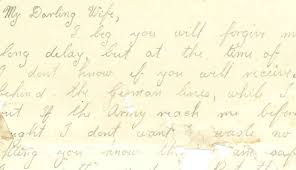 My Darling Wife,
I beg you will forgive m
long delay but at the time of
I don't know if you will receive
behind the German lines, while I
If the Army reach me befor
I don't want to waste no
you know